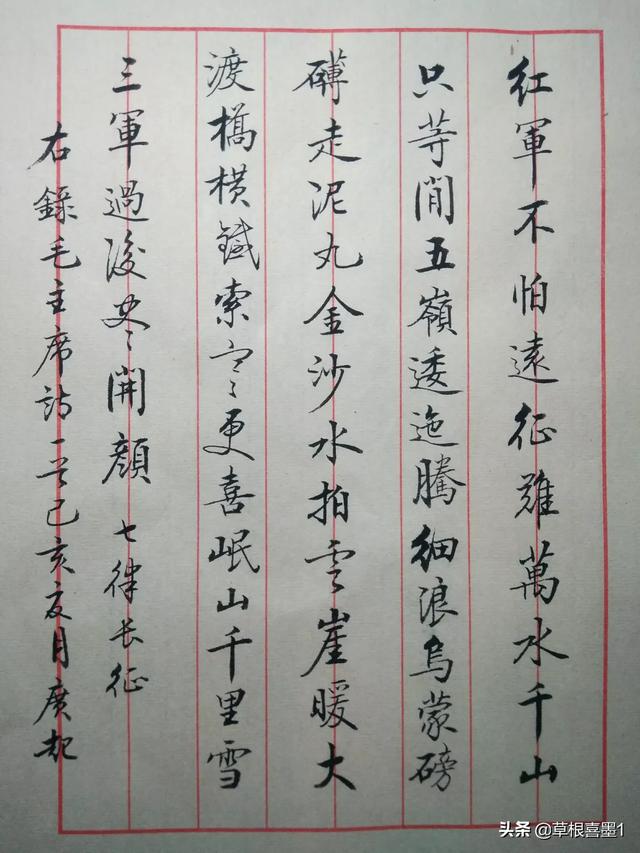 紅軍不怕遠征難萬水千山
只等閒五嶺逶迤騰細浪烏蒙磅
礴走泥丸金沙水拍雲崖暖大
渡橋橫鐵索寒更喜岷山千里雪
三軍過後盡開顏 七律长征
右錄毛主席詩一首己亥夏月廣起
头条 @草根喜墨1